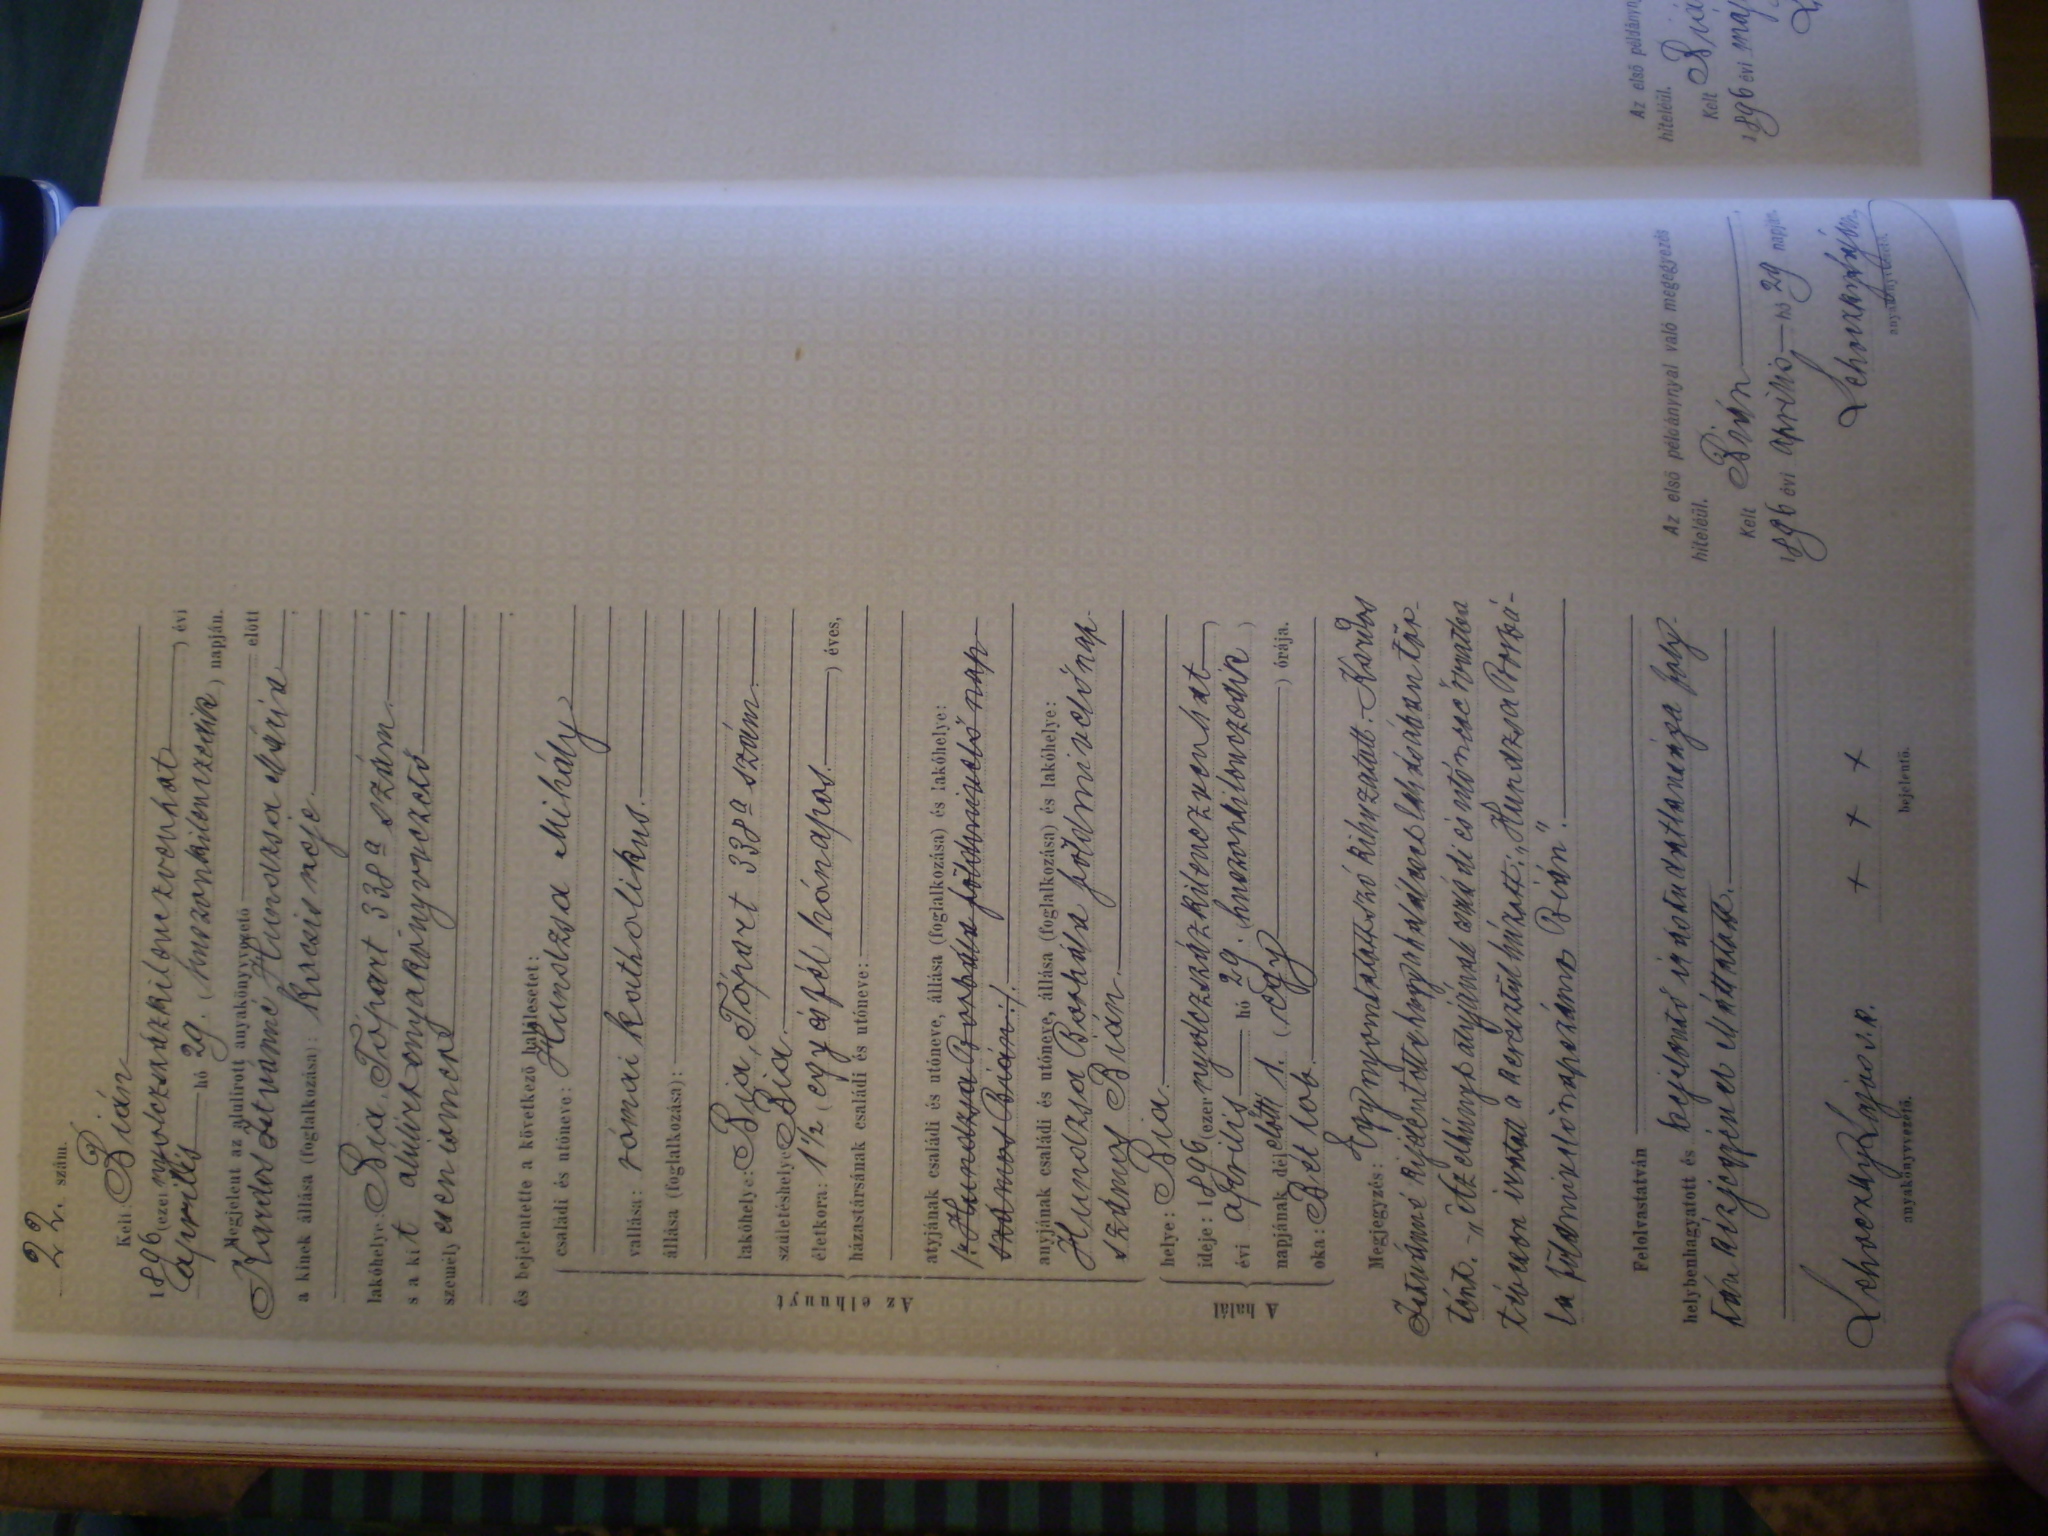 22. szám.
Kelt: Bián
1896 (ezer nyolczszázkilenczvenhat) évi
április hó 29. (huszonkilenczedik) napján.
Megjelent az alulirott anyakönyvvezető előtt
Kardos Istvánné Hundzsa Mária;
a kinek állása (foglalkozása): kocsis neje.
lakóhelye: Bia, Tópart 338a szám.;
s a kit alulirt anyakönyvvezető
személyesen ismer;
és bejelentette a következő halálesetet:
családi és utóneve: Hundzsa Mihály
vallása: római katholikus.
állása (foglalkozása):
lakóhelye: Bia, Tópart 338a szám.
születéshelye: Bia.
életkora: 1½ (egy és fél hónapos.) éves,
házastársának családi és utóneve:
Az elhunyt
atyjának családi és utóneve, állása (foglalkozása) és lakóhelye:
/: Hundzsa Borbála földmivelő nap
számos Bián :/.
anyjának családi és utóneve, állása (foglalkozása) és lakóhelye:
Hundzsa Borbála földmivelő nap-
számos Bián.
A halál
helye: Bia.
ideje: 1896 (ezer nyolczszázkilenczvenhat)
évi április hó 29. (huszonkilenczedik)
napjának dél előtti 1. (egy) órája.
oka: Bél lob.
Megjegyzés: Egy nyomtatott szó kihuzatott. Kardos
Istvánné kijelentette hogy haláleset lakásában tör-
tént. - „Az elhúnyt atyjának családi és utóneve" rovatba
tévesen iratott a keresztül húzott: „Hundzsa Borbá-
la földmivelő napszámos Bián".
Felolvastatván
helybenhagyatott és bejelentő irástudatlansága foly-
tán kézjegyének
Lehoczky Lajos s. k.
anyakönyvvezető.
+ + +
bejelentő.
Az első példánynyal való megegyezés
hiteléül.
Kelt Bián
1896 évi április hó 29 napján.
anyakönyvvezető.
Az első példányny
hiteléül.
Kelt Biá
1896 évi máj